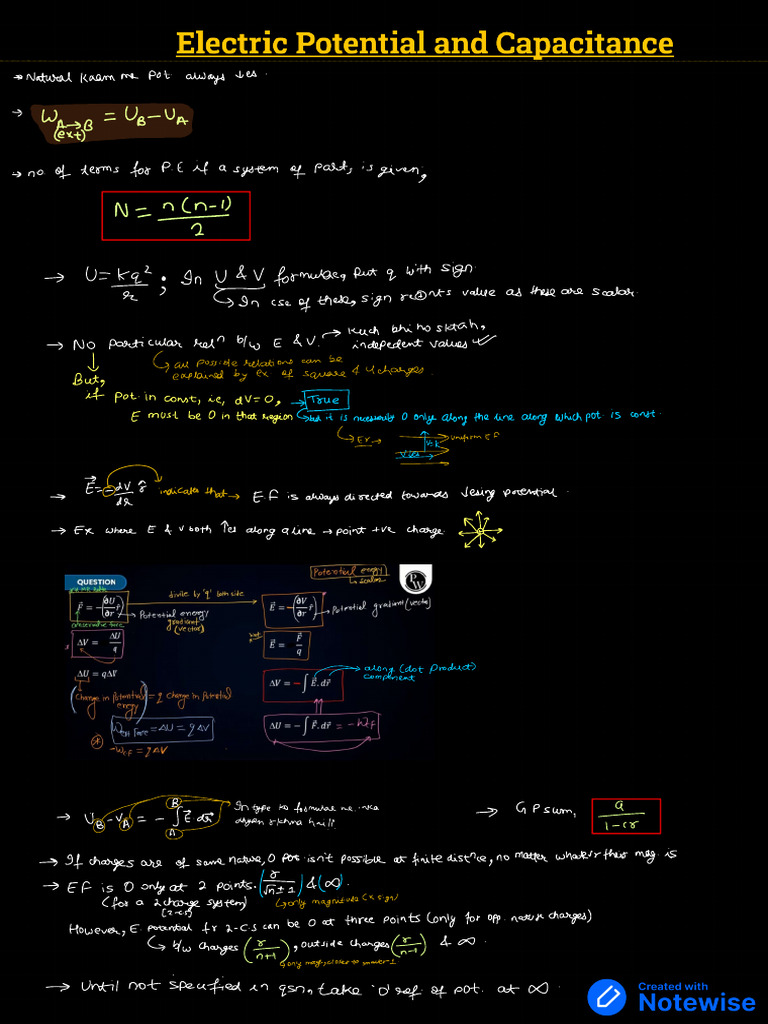 Electric Potential and Capacitance
→ Natural kaam me pot. always ↓es.
→ W A→B (ext) = U_B – U_A
→ no of terms for P.E if a system of part, is given,
N = n(n-1)/2
→ U = kq²/r ; In U & V formulae, put q with sign.
↳ In cse of these, sign represents value as these are scalar.
→ No particular relⁿ b/w E & V. → kuch bhi ho sktah, indepedent values
↳ all possible relations can be explained by ex. of square & 4 charges.
But,
if pot. in const, ie, dV=0, → True
E must be 0 in that region ↳ but it is necessarily 0 only along the line along which pot. is const.
↳ Ex → uniform EF
V=k
V ↓es
→ E⃗ = -dV/dr r̂ indicates that → EF is always directed towards ↓esing potential.
→ Ex where E & V both ↑es along a line → point +ve charge
QUESTION
Potential energy
↳ scalar
PW
F⃗ = -(∂U/∂r r̂) → Potential energy gradient (vector)
divide by 'q' both side
E⃗ = -(∂V/∂r r̂) → Potential gradient (vector)
conservative force
ΔV = ΔU/q
E⃗ = F⃗/q
ΔU = qΔV
ΔV = -∫E⃗.dr⃗
along (dot product) component
(Change in potential energy) = q change in potential
W = ΔU = qΔV
ΔU = -∫F⃗.dr⃗ = -W_CF
* -W_CF = qΔV
→ V_B - V_A = -∫_A^B E⃗.dr⃗
In type to formulae me
→ GP sum, a/1-r
→ If charges are of same nature, 0 pot isn't possible at finite dist^nce, no matter whatever their mag. is
→ EF is 0 only at 2 points. (r/√n±1) & (∞).
(for a 2 charge system)
(2-c.s)
↳ only magnitude (x sign)
However, E. potential fr 2-C.S can be 0 at three points (only for opp. nature charges)
↳ b/w charges (r/n+1), outside charges (r/n-1) & ∞.
→ Until not specified in qsn, take '0' ref. of pot. at ∞.
Created with
Notewise